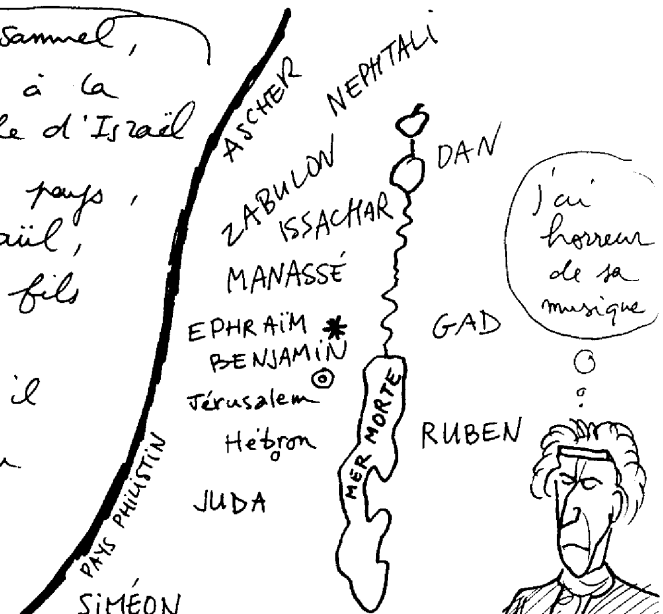 Samuel,
à la
d'Israël
pays,
fils
il
ASCHER
NEPHTALI
DAN
ZABULON
ISSACHAR
MANASSÉ
EPHRAÏM
BENJAMIN
GAD
Jérusalem
Hébron
MER MORTE
RUBEN
JUDA
PAYS PHILISTIN
SIMÉON
j'ai
horreur
de sa
musique